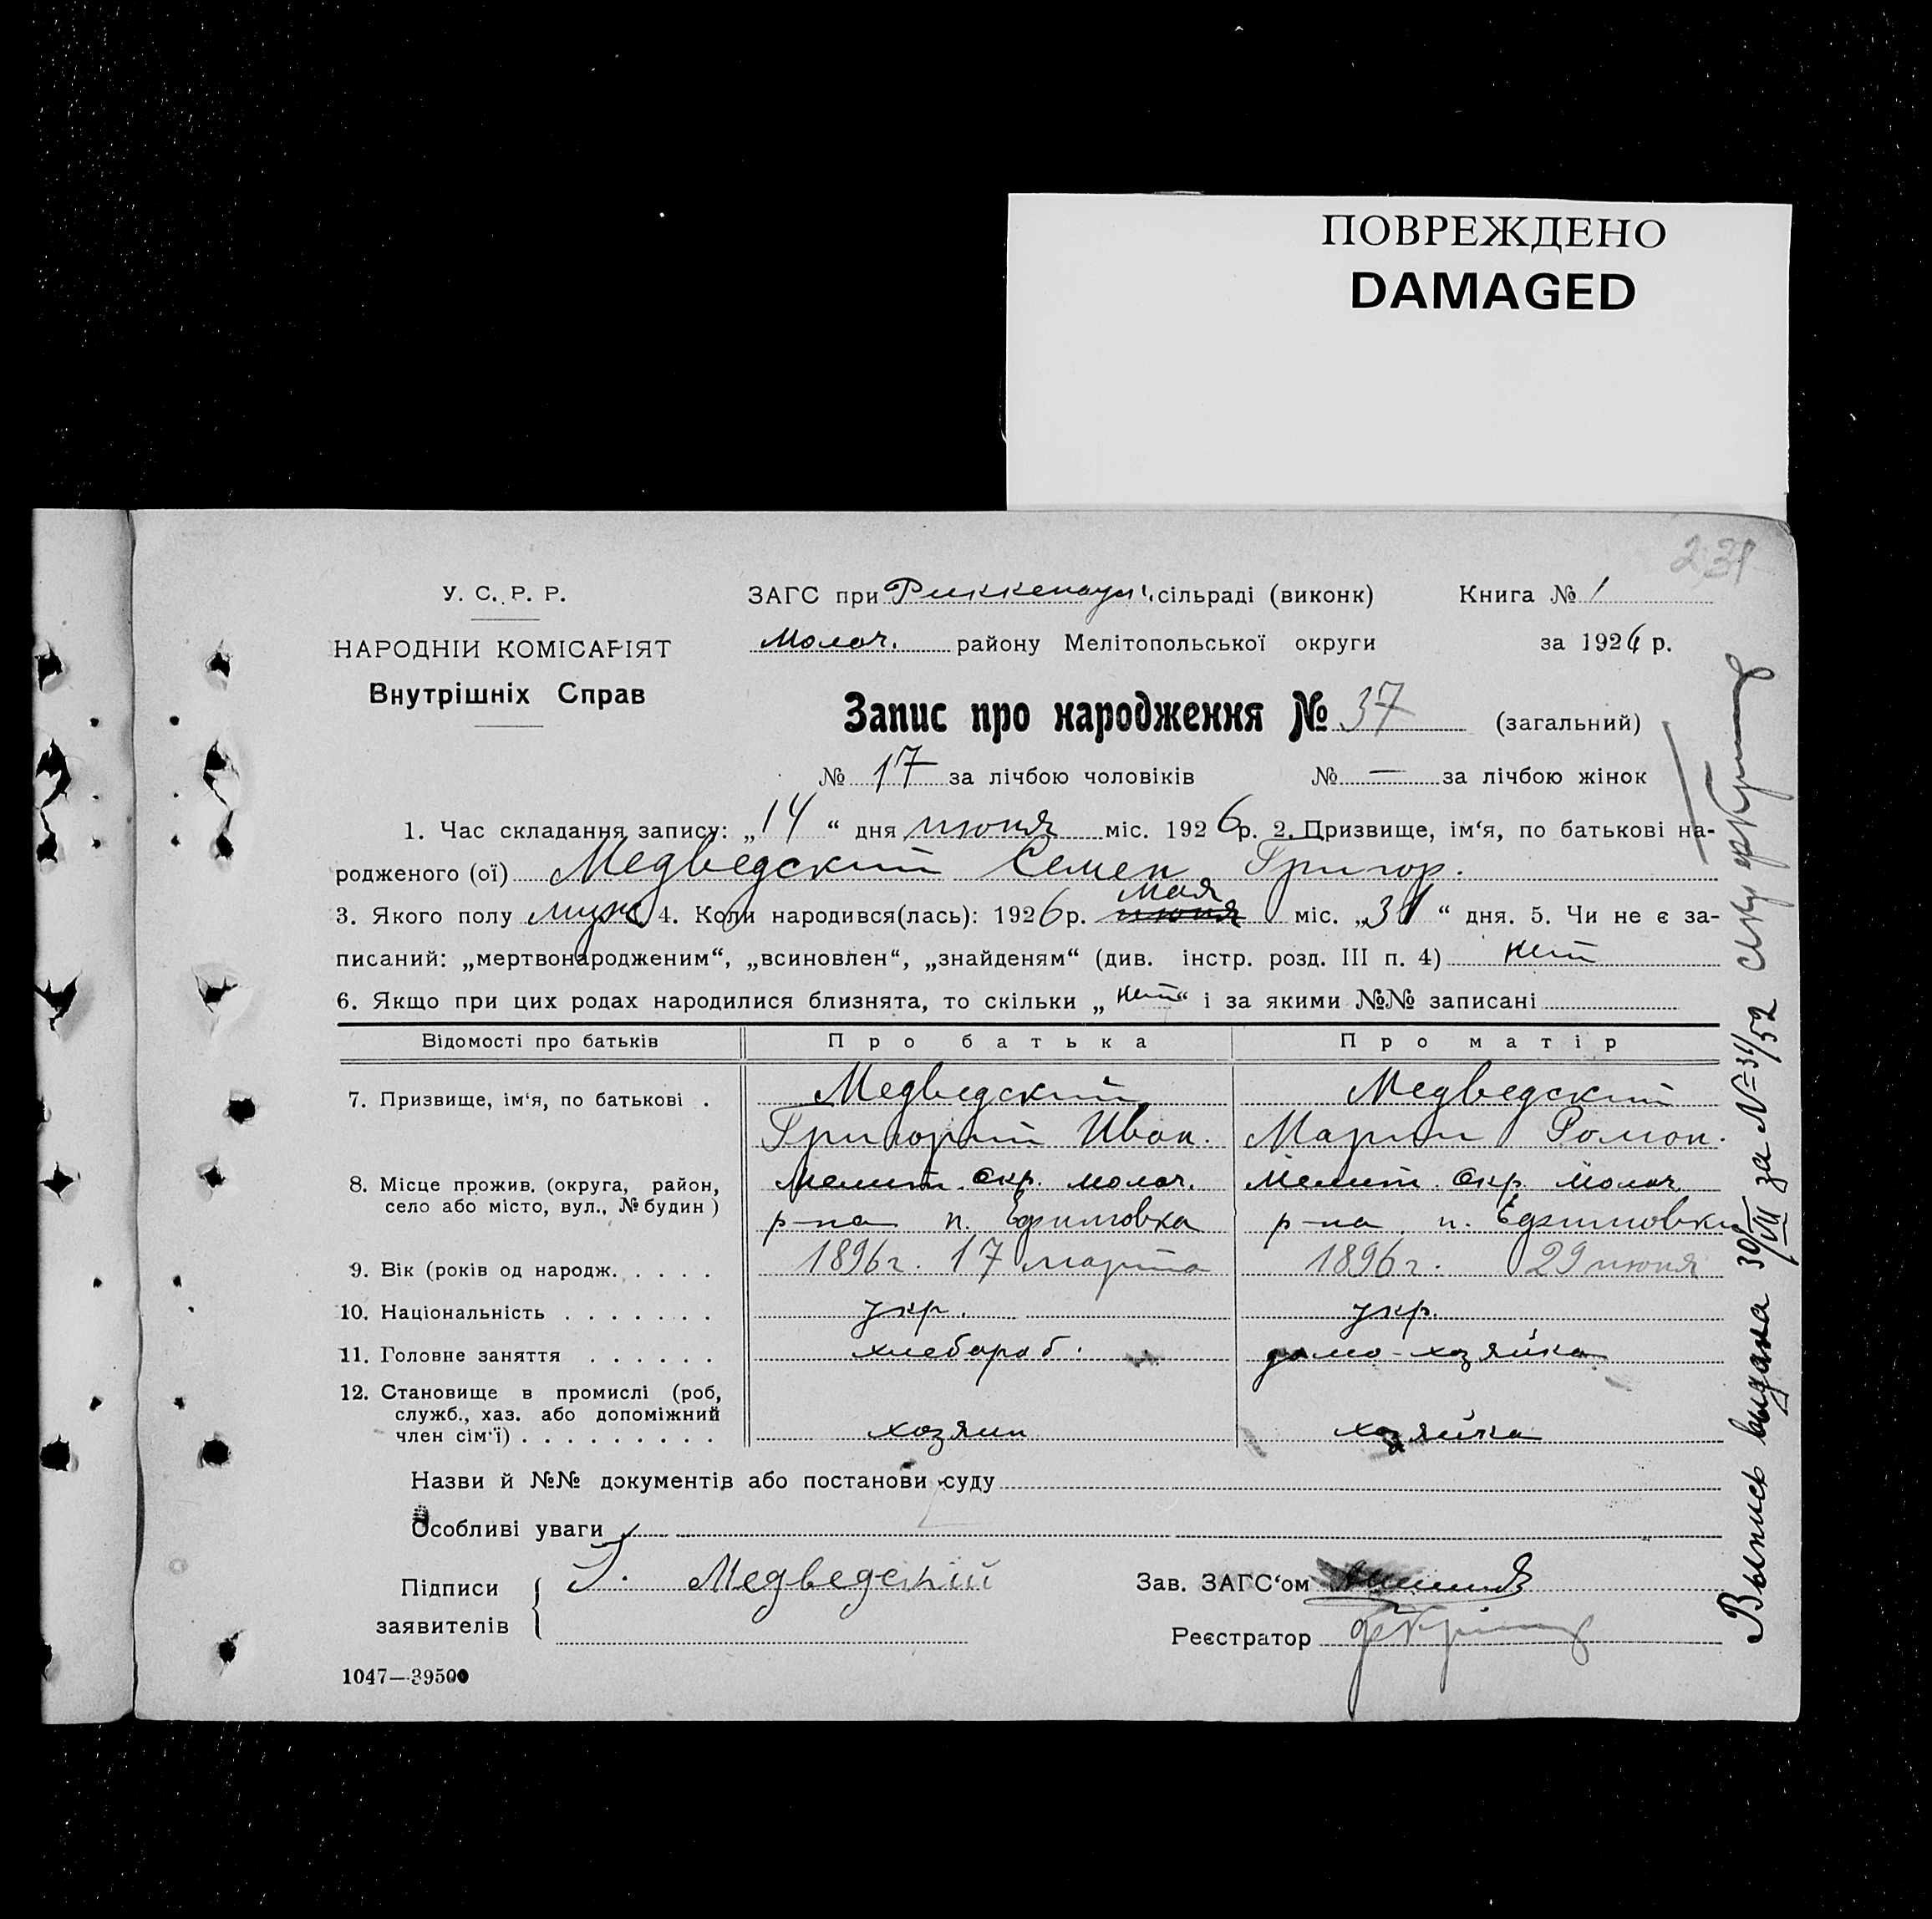 ПОВРЕЖДЕНО
DAMAGED
231
У. С. Р. Р.
НАРОДНІЙ КОМІСАРІЯТ
Внутрішніх Справ
ЗАГС при Риккенаус. сільраді (виконк) Книга № 1
Молоч. району Мелітопольської округи за 1926 р.
Запис про народження № 37 (загальний)
№ 17 за лічбою чоловіків № — за лічбою жінок
1. Час складання запису: „14“ дня июня міс. 1926 р. 2. Призвище, ім‘я, по батькові на-
родженого (ої) Медведский Семен Григор.
3. Якого полу муж 4. Коли народився(лась): 1926 р. мая июня міс. „31“ дня. 5. Чи не є за-
писаний: „мертвонародженим“, „всиновлен“, „знайденям“ (див. інстр. розд. III п. 4) нет
6. Якщо при цих родах народилися близнята, то скільки „нет“ і за якими №№ записані
Відомості про батьків Про батька Про матір
7. Призвище, ім‘я, по батькові . Медведский Медведский
Григорий Иван. Марии Роман.
8. Місце прожив. (округа, район, Мелит. окр. молоч. Мелит. окр. молоч.
село або місто, вул., № будин) р-на п. Ефимовка р-на п. Ефимовка
9. Вік (років од народж. . . . . 1896 г. 17 марта 1896 г. 29 июня
10. Національність . . . . . . . укр. укр.
11. Головне заняття . . . . . . хлебороб. домо-хозяйка
12. Становище в промислі (роб,
служб., хаз. або допоміжний
член сім‘ї) . . . . . . . . . хозяин хозяйка
Назви й №№ документів або постанови суду
Особливі уваги
Підписи заявителів Г. Медведский
Зав. ЗАГС‘ом
Реєстратор
1047—39500
Выпись выдана 30/VIII за № 31/52